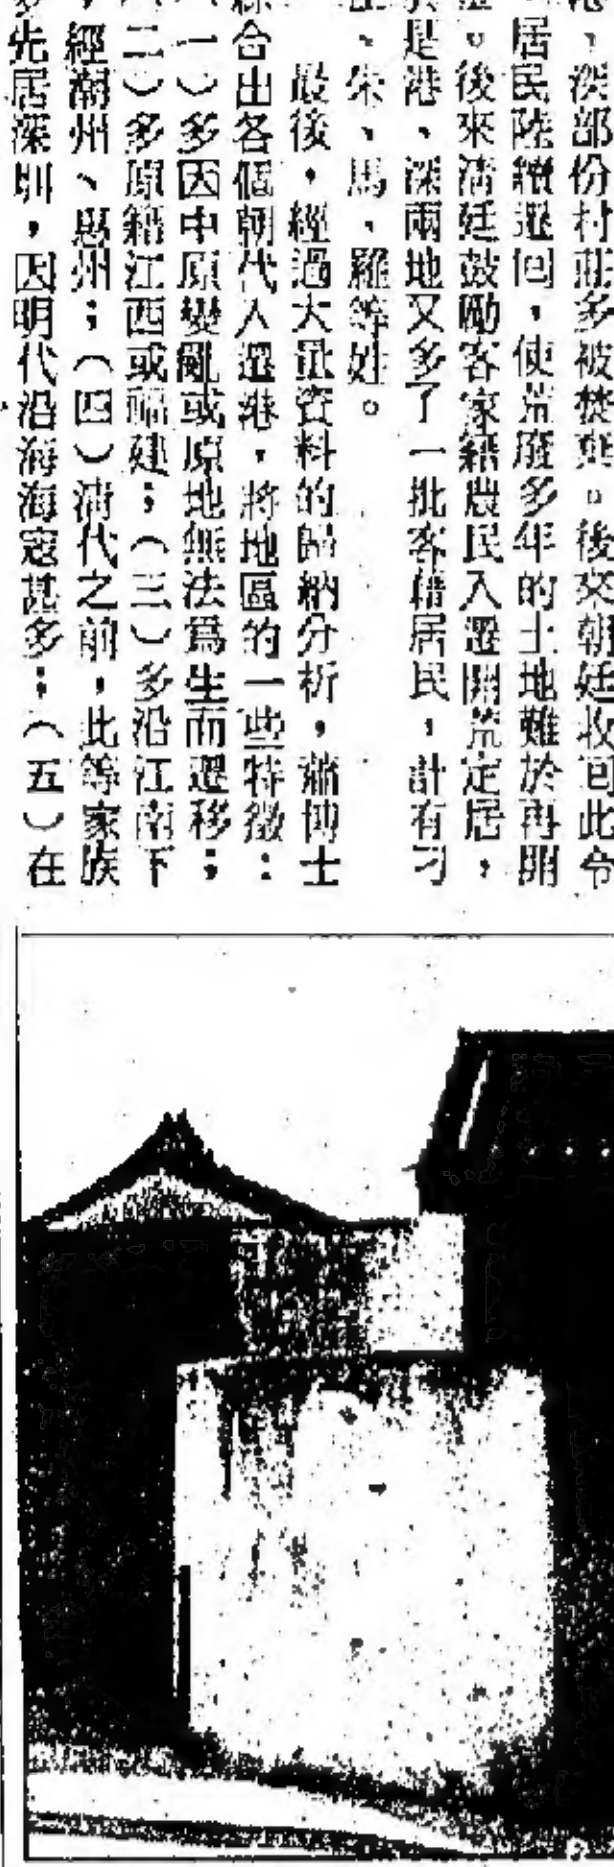 港、深部份村莊多被焚棄。後來朝廷收回此令
，居民陸續返回，使荒廢多年的土地難於再開
。後來清廷鼓勵客家籍農民入遷開荒定居，
是港、深兩地又多了一批客籍居民，計有刁
、朱、馬、羅等姓。
最後，經過大量資料的歸納分析，蕭博士
綜合出各個朝代入遷港，將地區的一些特徵：
（一）多因中原變亂或原地無法爲生而遷移；
（二）多原籍江西或福建；（三）多沿江南下
，經潮州、惠州；（四）清代之前，此等家族
多先居深圳，因明代沿海海寇甚多；（五）在